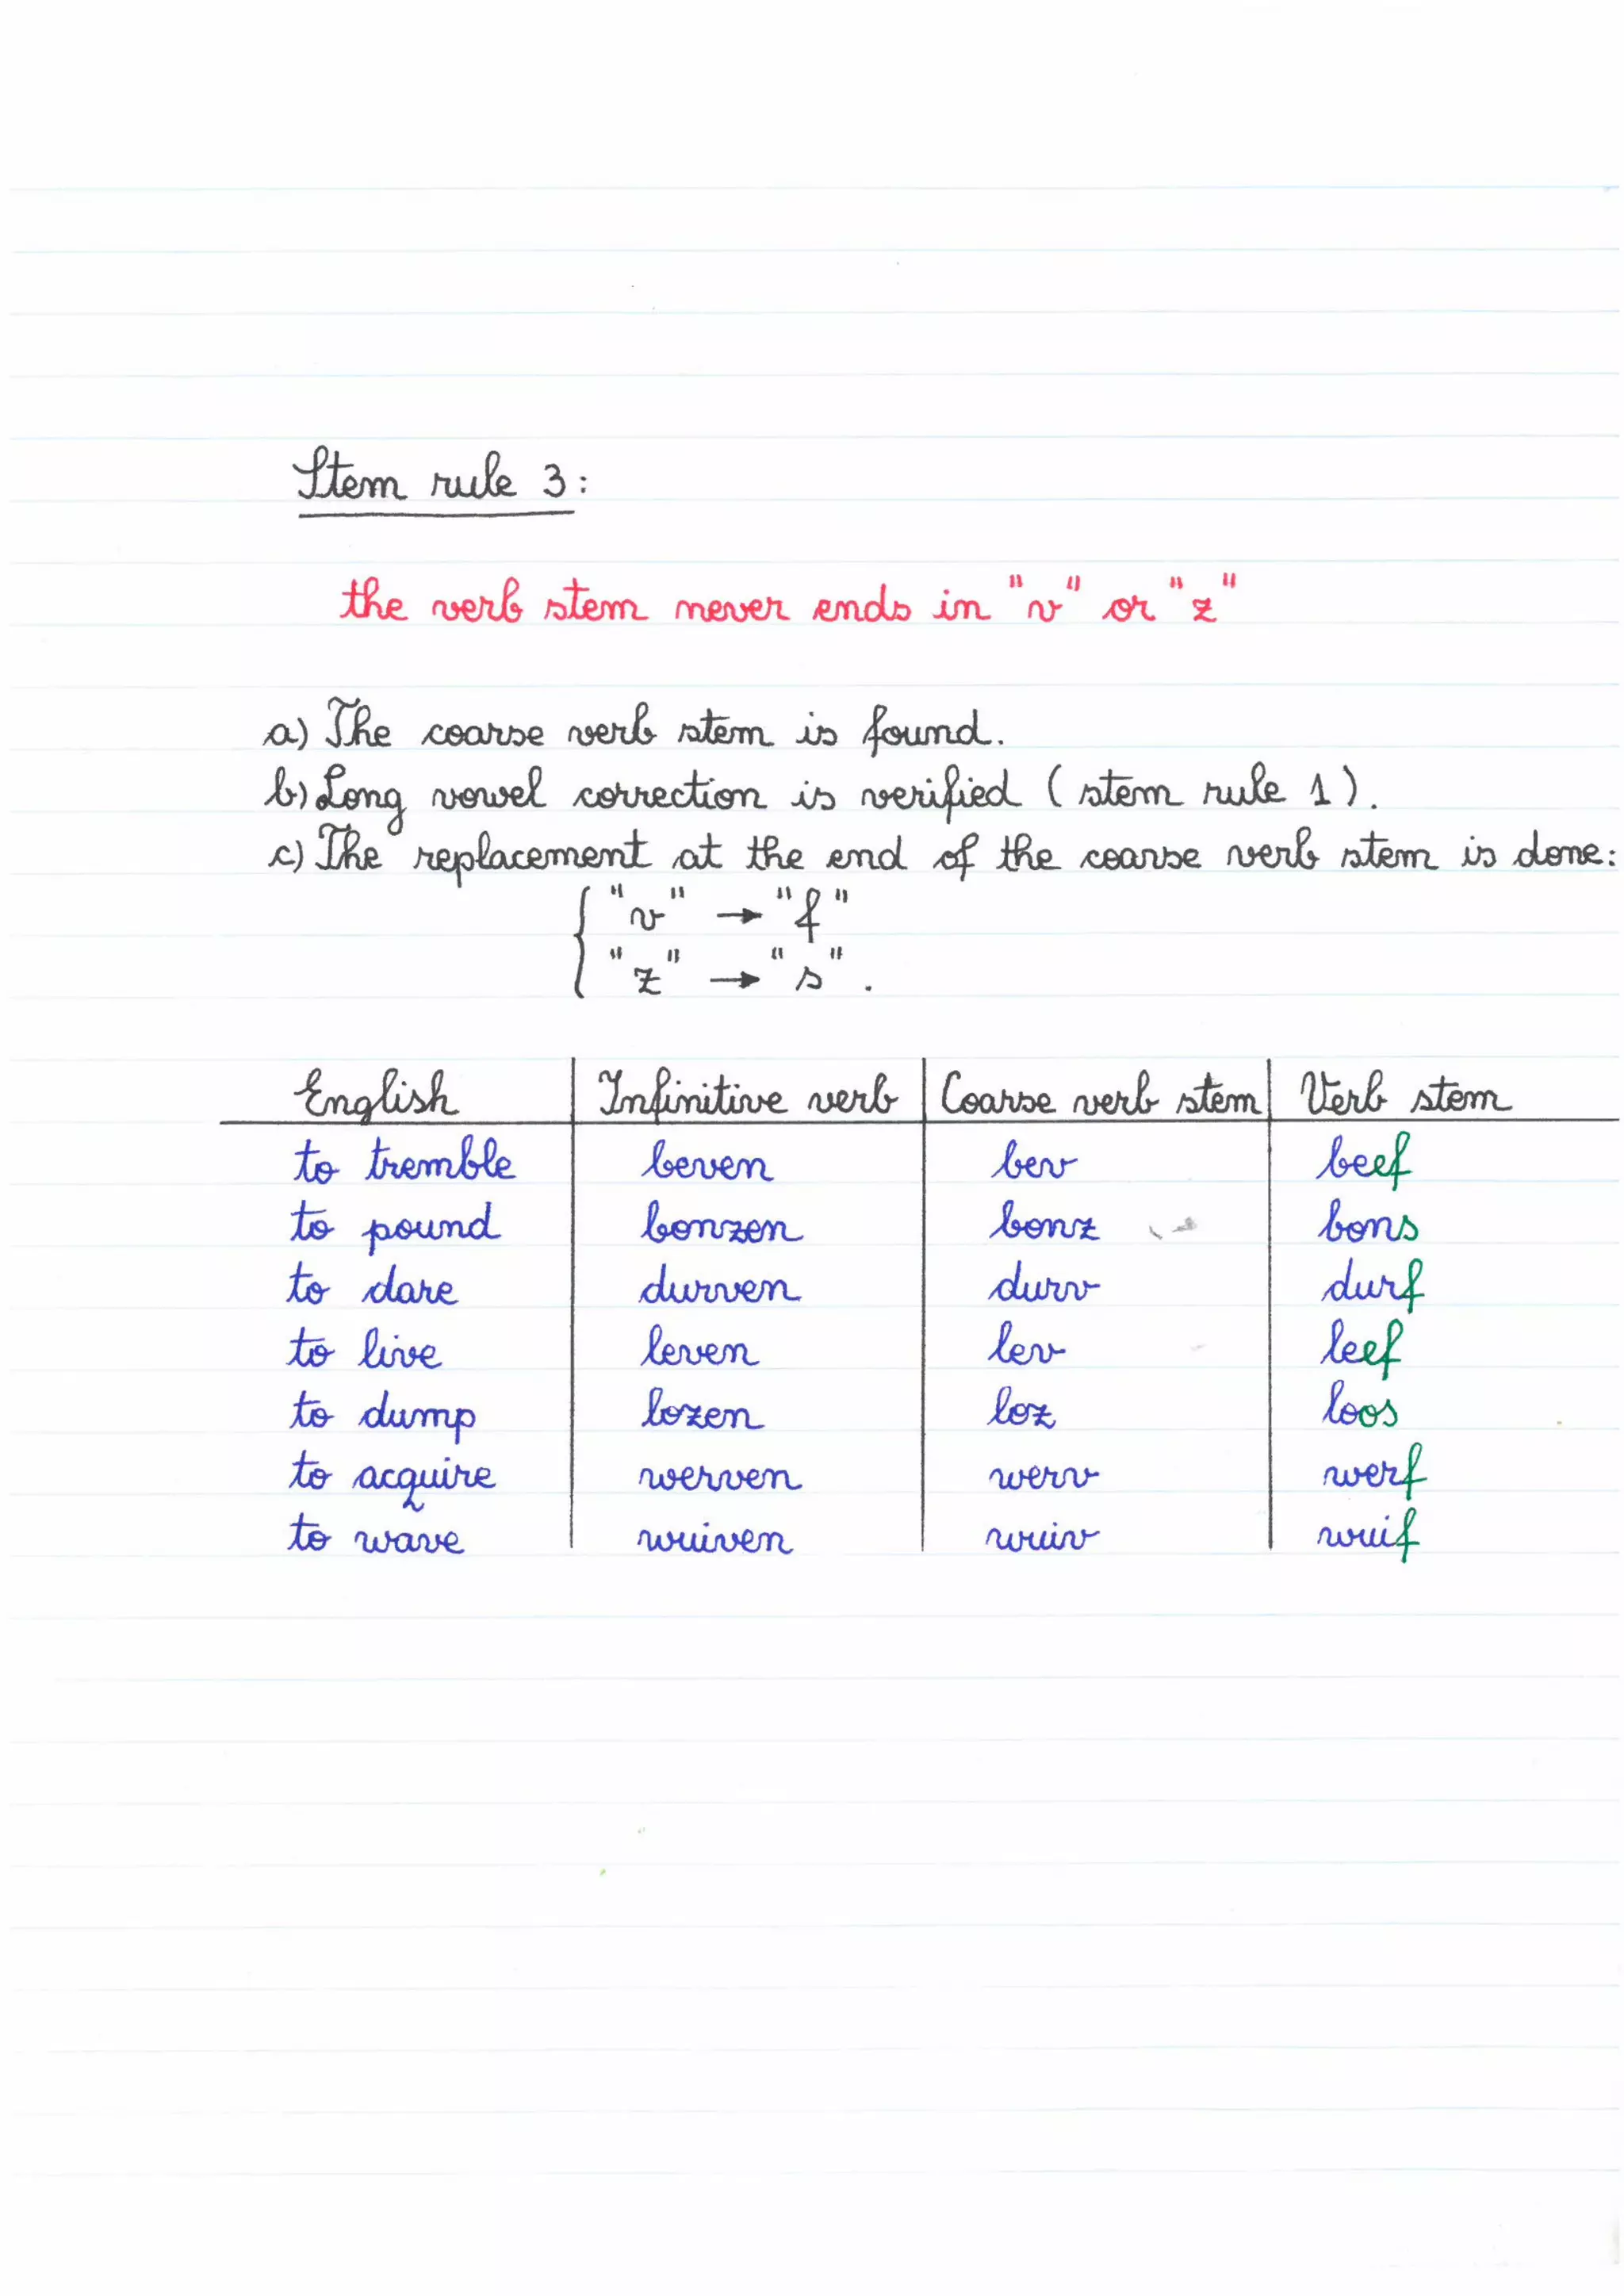 Stem rule 3:
the verb stem never ends in "v" or "z"
a) The coarse verb stem is found.
b) Long vowel correction is verified (stem rule 1).
c) The replacement at the end of the coarse verb stem is done:
{ "v" → "f"
"z" → "s".
English | Infinitive verb | Coarse verb stem | Verb stem
to tremble | beven | bev | beef
to pound | bonzen | bonz | bons
to dare | durven | durv | durf
to live | leven | lev | leef
to dump | lozen | loz | loos
to acquire | werven | werv | werf
to wave | wuiven | wuiv | wuif